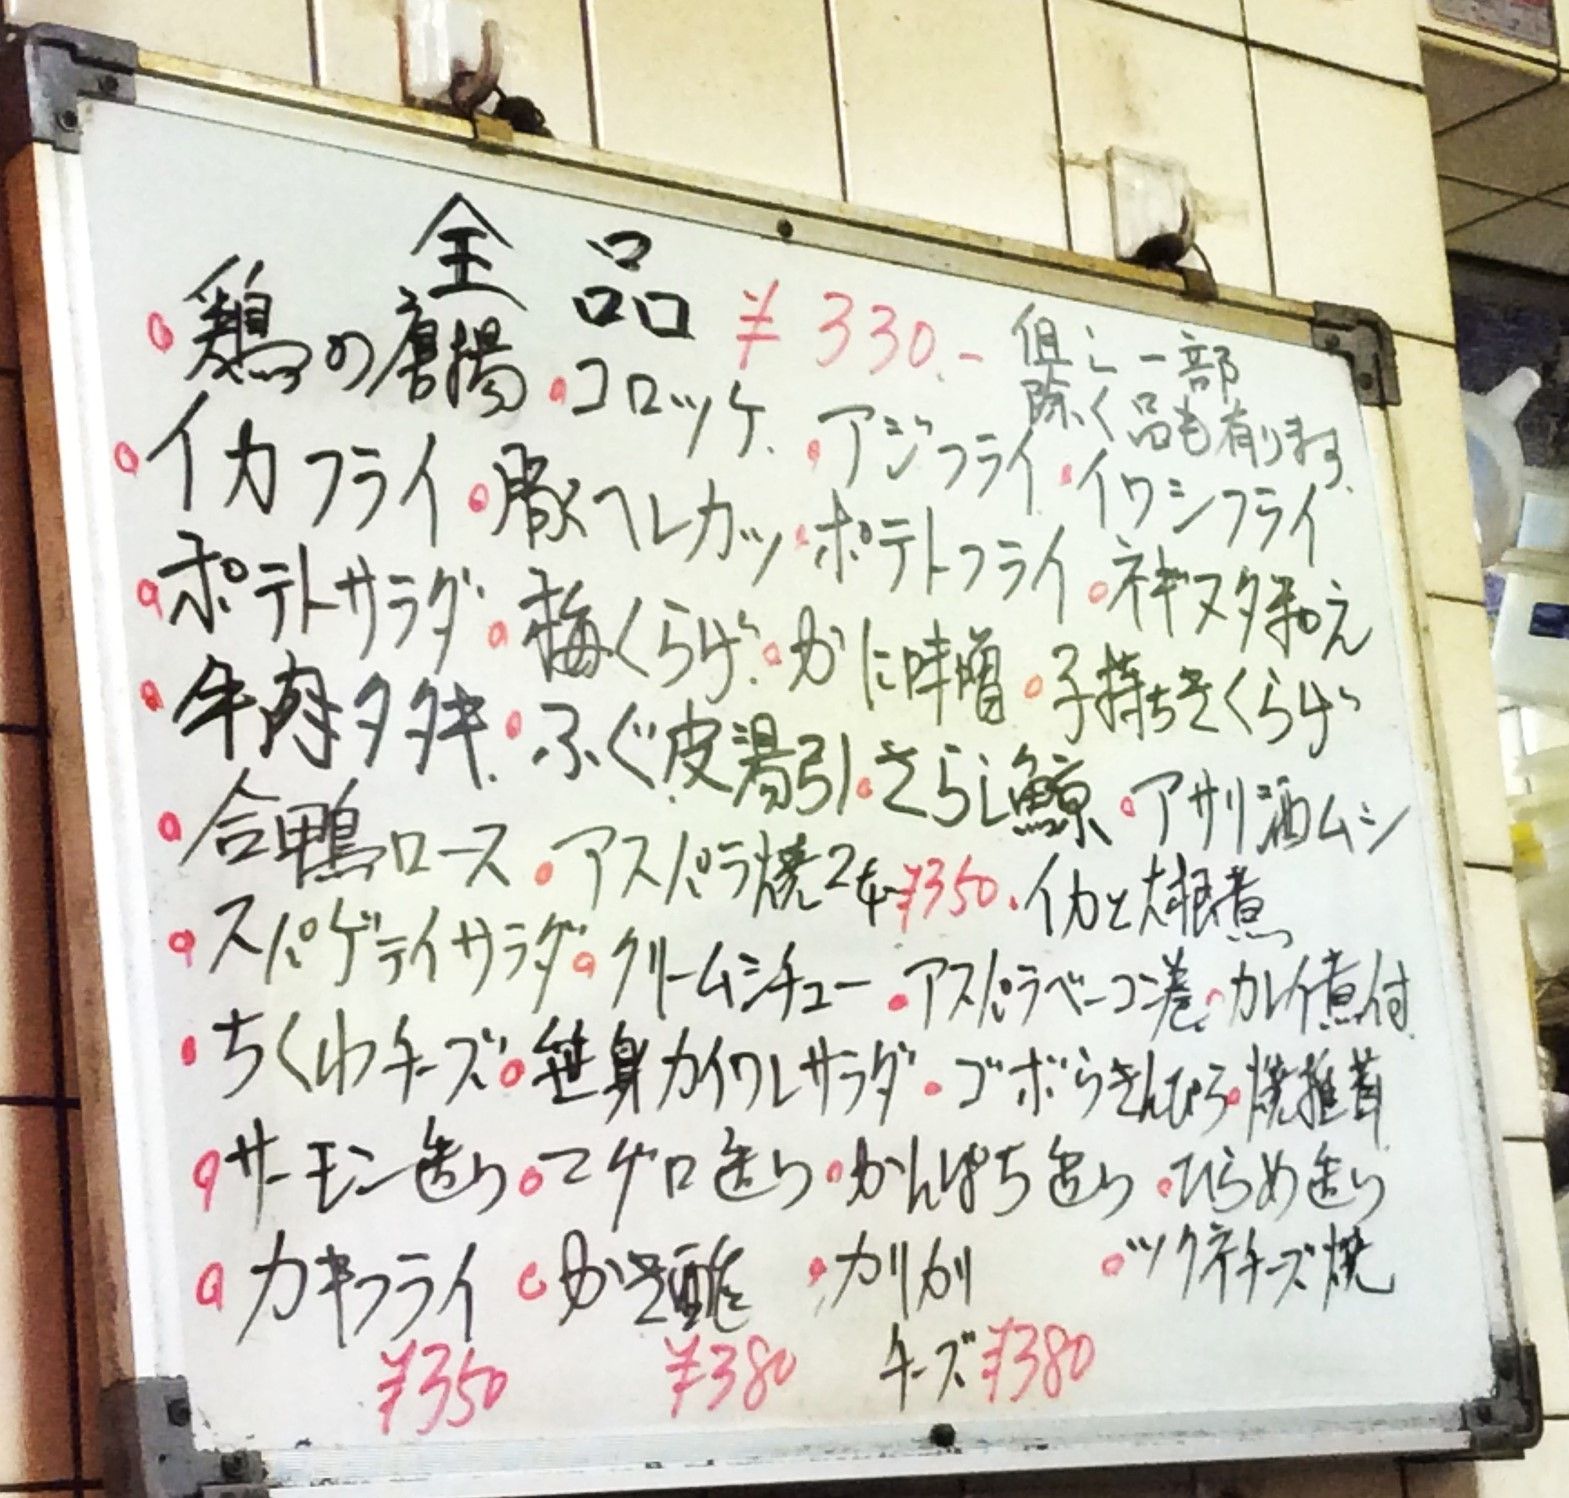 全品 ¥330.- 但し一部
除く品も有ります
鶏の唐揚 コロッケ アジフライ イワシフライ
イカフライ 豚ヘレカツ ポテトフライ ネギヌタ和え
ポテトサラダ 梅くらげ かに味噌 子持ちきくらげ
牛肉タタキ ふぐ皮湯引 さらし鯨 アサリ酒ムシ
合鴨ロース アスパラ焼2本¥350 イカと大根煮
スパゲティサラダ クリームシチュー アスパラベーコン巻 カレイ煮付
ちくわチーズ 笹身カイワレサラダ ゴボウきんぴら 焼椎茸
サーモン造り マグロ造り かんぱち造り ひらめ造り
カキフライ かき酢 カリカリ ツクネチーズ焼
¥350 ¥380 チーズ¥380